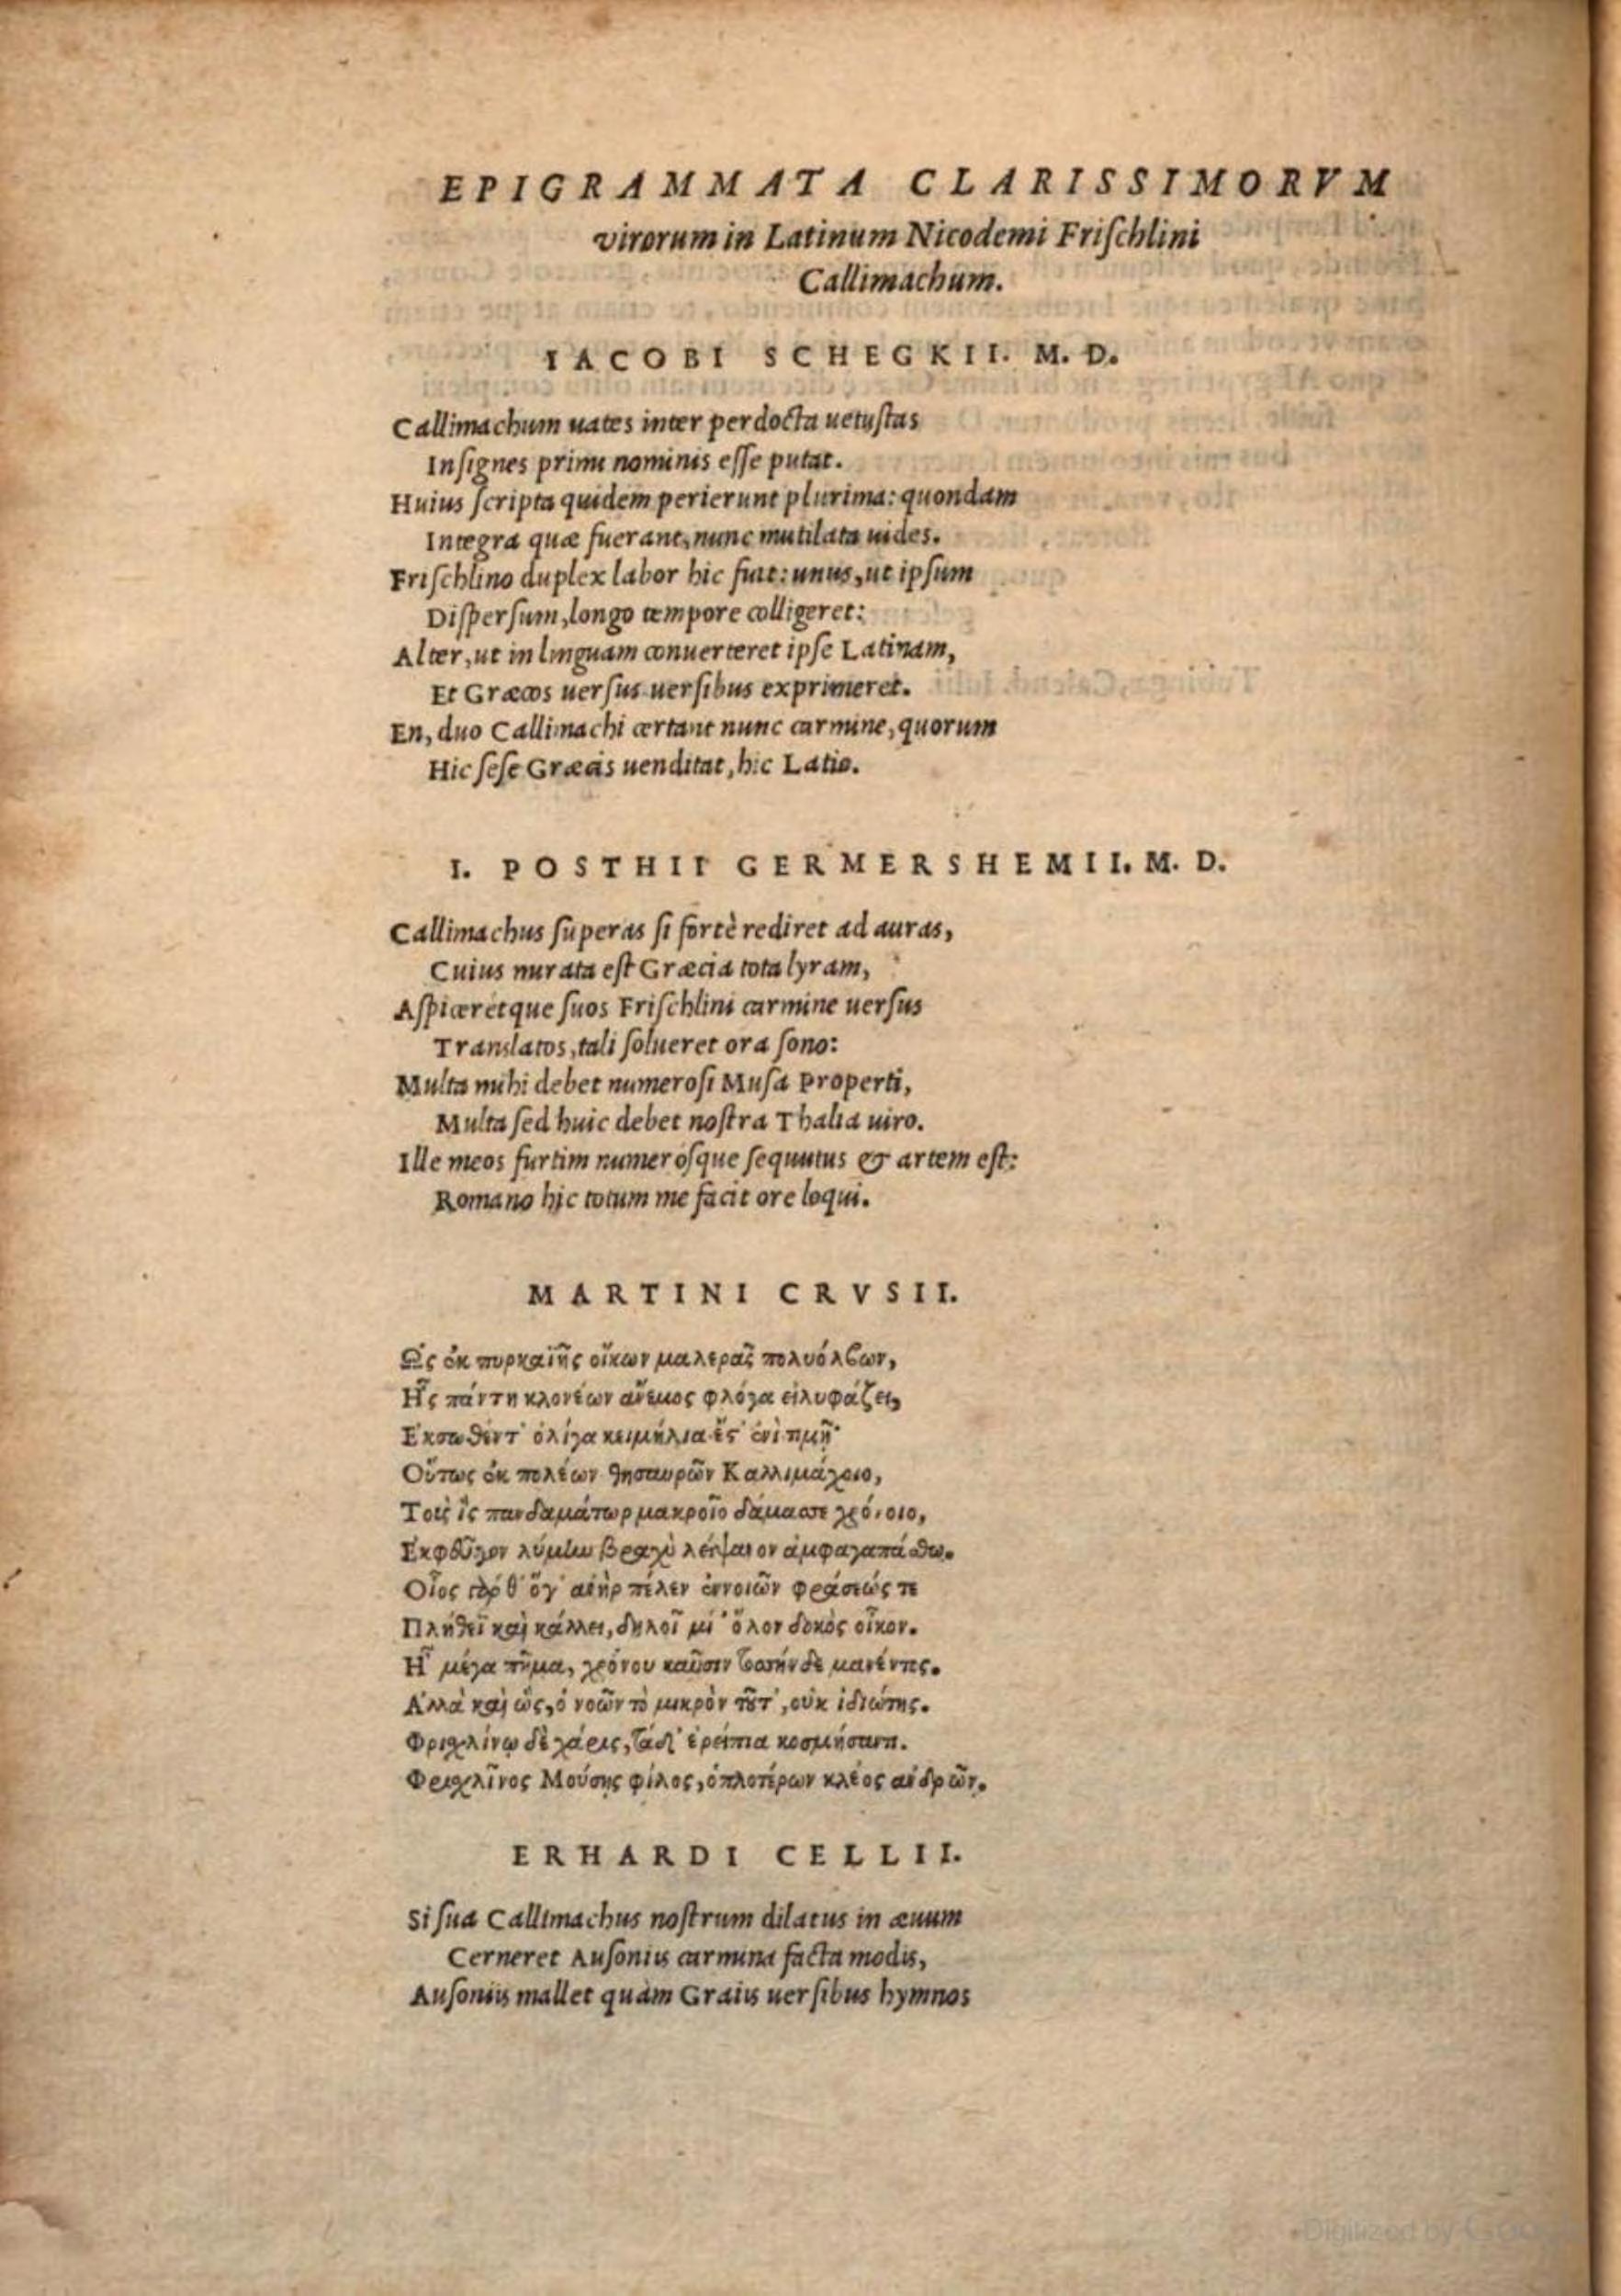 EPIGRAMMATA CLARISSIMORVM
virorum in Latinum Nicodemi Friſchlini
Callimachum.
IACOBI SCHEGKII. M. D.
Callimachum uates inter perdocta uetuſtas
Inſignes primi nominis eſſe putat.
Huius ſcripta quidem perierunt plurima: quondam
Integra quæ fuerant, nunc mutilata uides.
Friſchlino duplex labor hic fuit: unus, ut ipſum
Diſperſum, longo tempore colligeret:
Alter, ut in linguam conuerteret ipſe Latinam,
Et Græcos uerſus uerſibus exprimeret.
En, duo Callimachi certant nunc carmine, quorum
Hic ſeſe Græcis uenditat, hic Latio.
I. POSTHII GERMERSHEMII. M. D.
Callimachus ſuperas ſi fortè rediret ad auras,
Cuius mirata eſt Græcia tota lyram,
Aſpiceretque ſuos Friſchlini carmine uerſus
Translatos, tali ſolueret ora ſono:
Multa mihi debet numeroſi Muſa Properti,
Multa ſed huic debet noſtra Thalia uiro.
Ille meos furtim numerosque ſequutus & artem eſt:
Romano hic totum me facit ore loqui.
MARTINI CRVSII.
Ὡς ἐκ πυρκαϊῆς οἴκων μαλερᾶς πολυόλβων,
Ἧς πάντη κλονέων ἄνεμος φλόγα εἰλυφάζει,
Ἐκσωθέντ' ὀλίγα κειμήλια ἔς' ἐνὶ τιμῇ·
Οὕτως ἐκ πολέων θησαυρῶν Καλλιμάχοιο,
Τοὺς ἲς πανδαμάτωρ μακροῖο δάμασσε χρόνοιο,
Ἐκφεῦγον λύμην βραχὺ λείψανον ἀμφαγαπάσθω.
Οἷος γὰρ θ' ὅγ' ἀνὴρ πέλεν ἐννοιῶν φράσεώς τε
Πλήθεϊ καὶ κάλλει, δηλοῖ μί' ὅλον δοκὸς οἶκον.
Ἦ μέγα πῆμα, χρόνου καῦσιν μανέντος.
Ἀλλὰ καὶ ὣς, ὁ νοῶν τὸ μικρὸν τοῦτ', οὐκ ἰδιώτης.
Φριχλίνῳ δὲ χάρις, τάδ' ἐρείπια κοσμήσαντι.
Φριχλῖνος Μούσης φίλος, ὁπλοτέρων κλέος ἀνδρῶν.
ERHARDI CELLII.
Si ſua Callimachus noſtrum dilatus in æuum
Cerneret Auſoniis carmina facta modis,
Auſoniis mallet quàm Graiis uerſibus hymnos
Digitized by Google